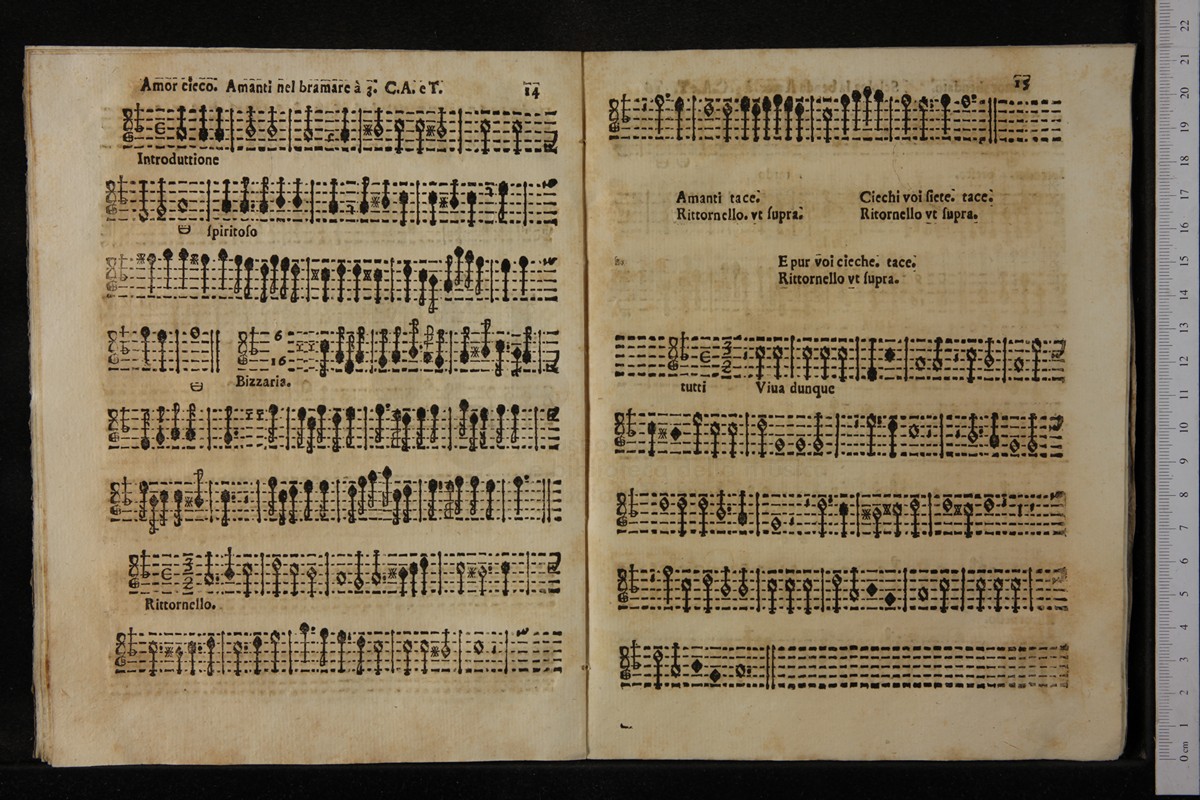 Amor cieco. Amanti nel bramare à 3. C.A. e T. 14
Introduttione
ſpiritoſo
6
16
Bizzaria.
3
2
Rittornello.
15
Amanti tace.
Rittornello. vt ſupra.
Ciechi voi ſiete. tace.
Ritornello vt ſupra.
E pur voi cieche. tace.
Rittornello vt ſupra.
3
2
tutti Viua dunque
22
21
20
19
18
17
16
15
14
13
12
11
10
9
8
7
6
5
4
3
2
1
0 cm